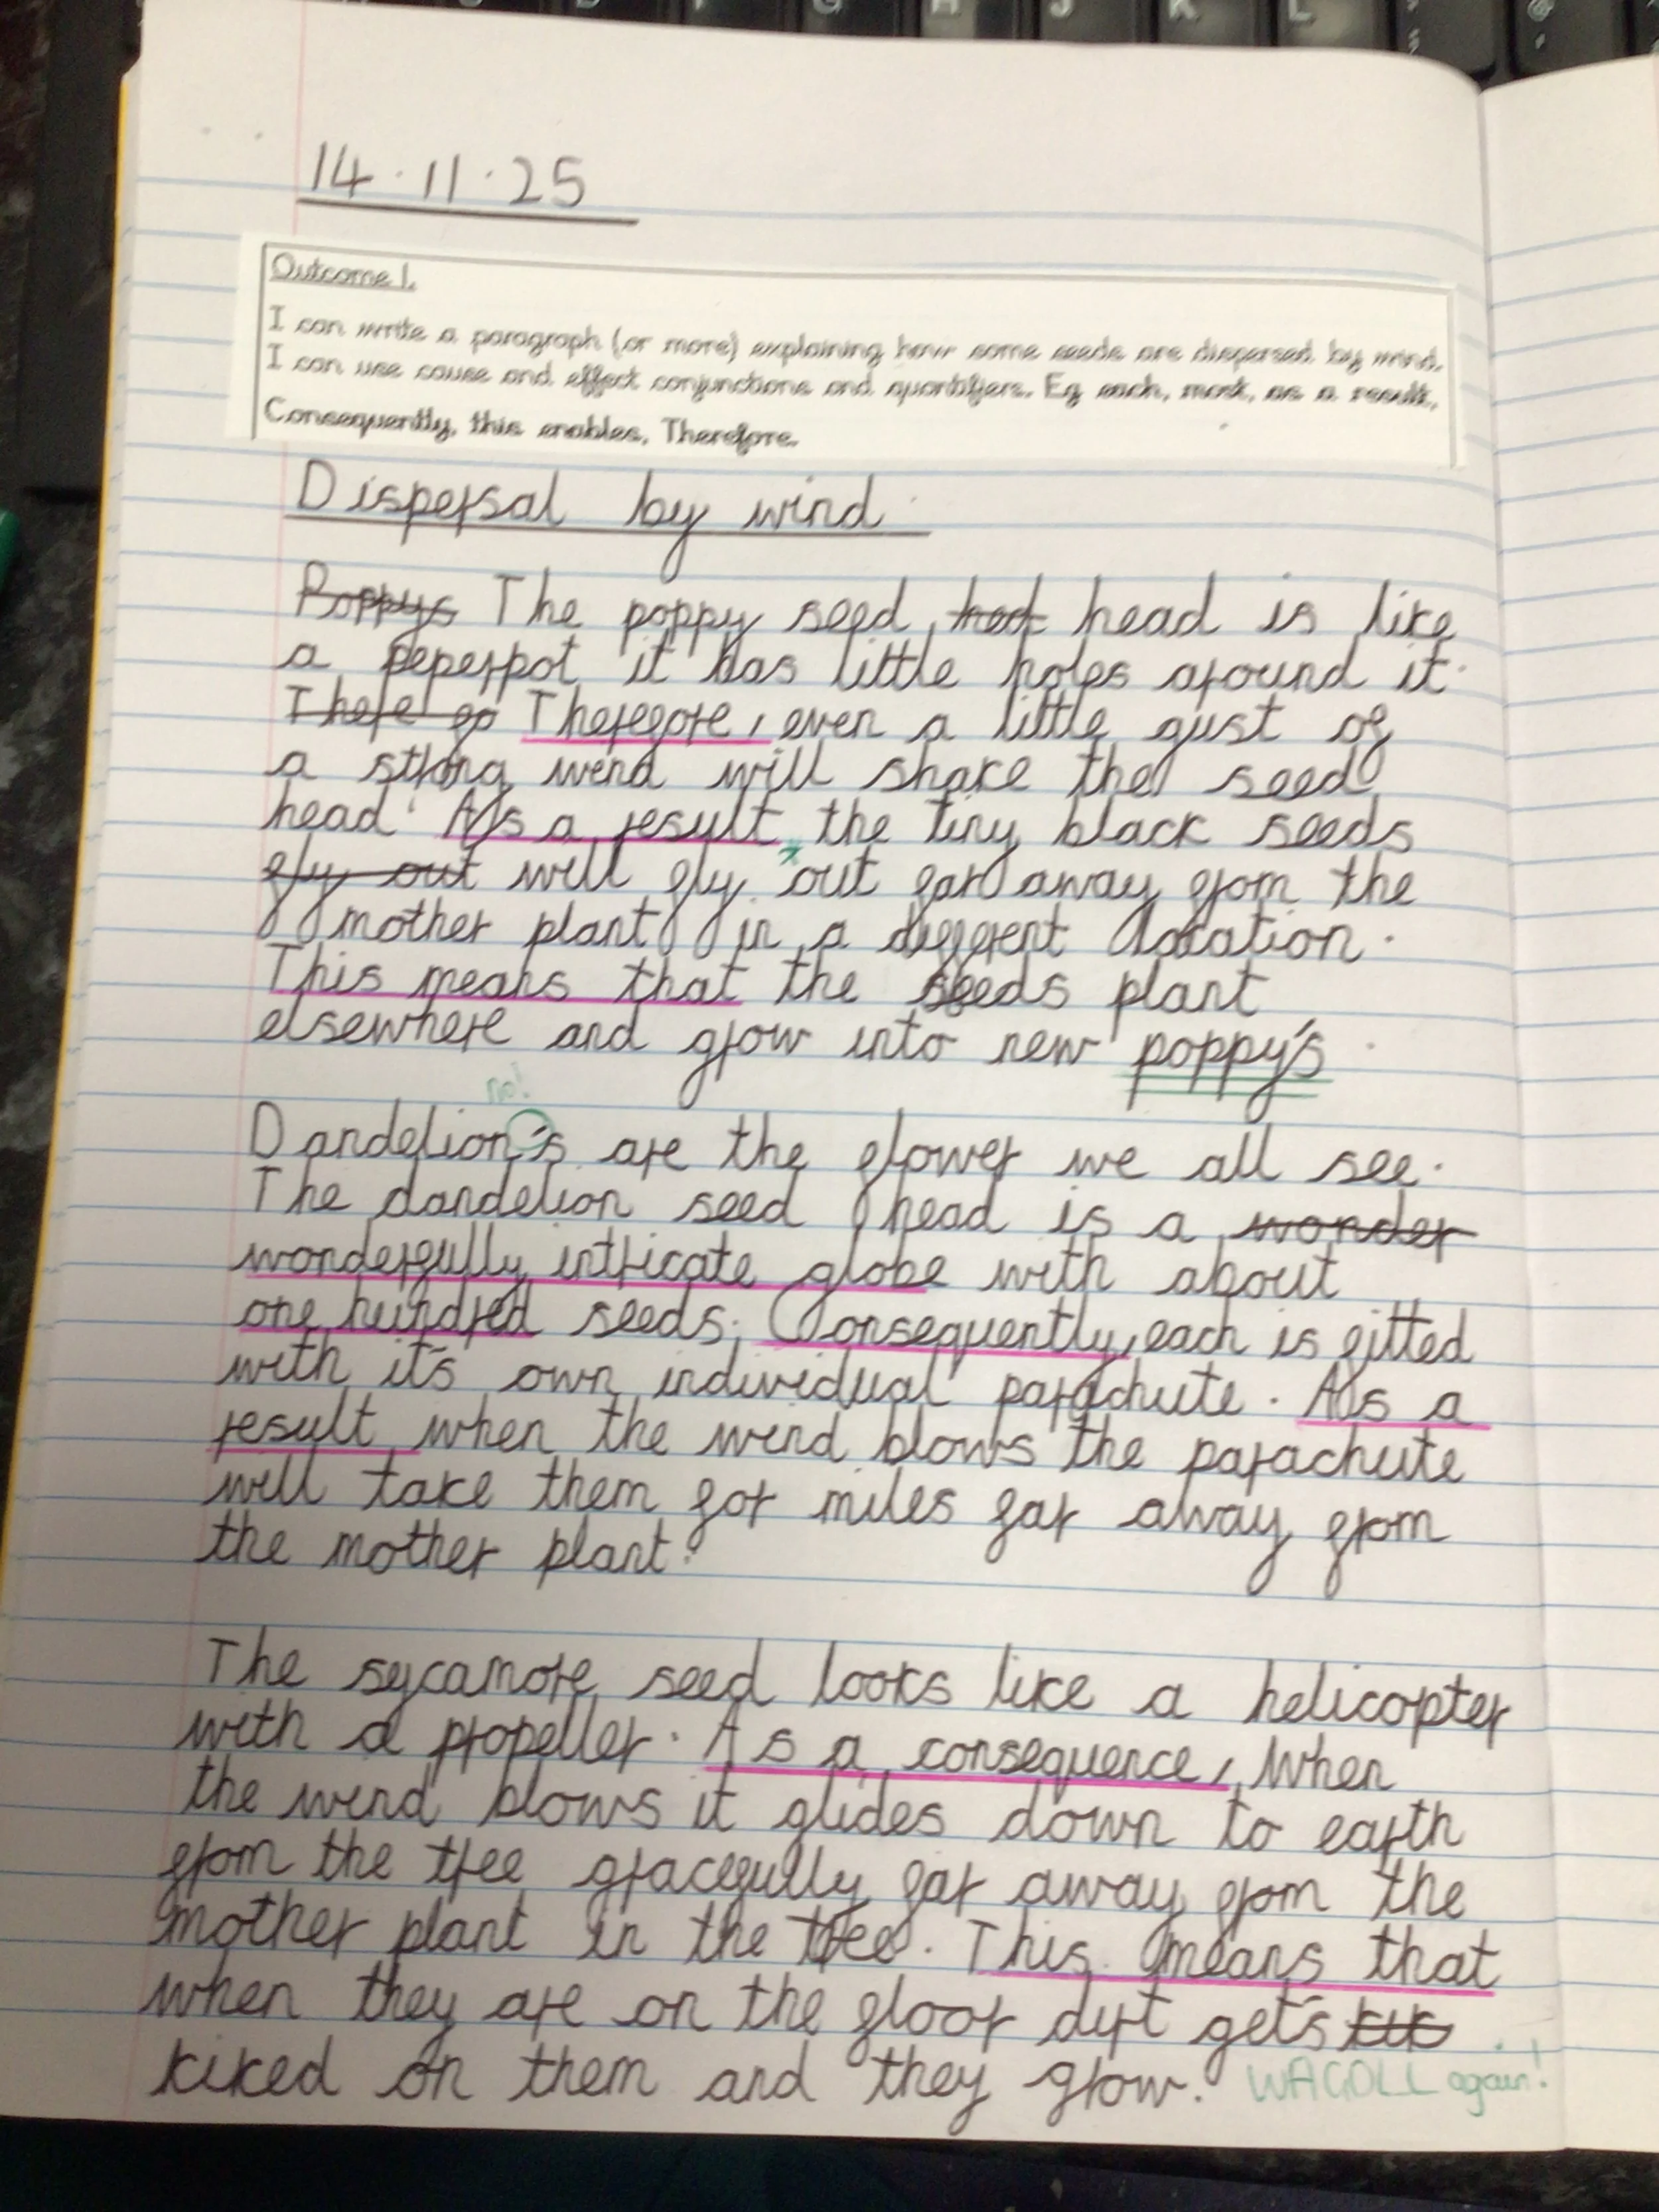 14.11.25
Outcome 1.
I can write a paragraph (or more) explaining how some seeds are dispersed by wind.
I can use cause and effect conjunctions and quantifiers. Eg each, most, as a result,
Consequently, this enables, Therefore.
Dispersal by wind
Poppys The poppy seed hed head is like
a peperpot it has little holes around it.
There fo Therefore, even a little gust of
a strong wind will shake the seed
head. As a result the tiny black seeds
fly out will fly out far away from the
mother plant in a diffrent location.
This means that the seeds plant
elsewhere and grow into new poppy's
no!
Dandelion's are the flower we all see.
The dandelion seed head is a wonder
wonderfully intricate globe with about
one hundred seeds. Consequently, each is fitted
with it's own individual parachute. As a
result when the wind blows the parachute
will take them for miles far away from
the mother plant.
The sycamore seed looks like a helicopter
with a propeller. As a consequence, When
the wind blows it glides down to earth
from the tree gracefully far away from the
mother plant in the tree. This means that
when they are on the floor dirt get's kik
kiked on them and they grow. WAGOLL again!